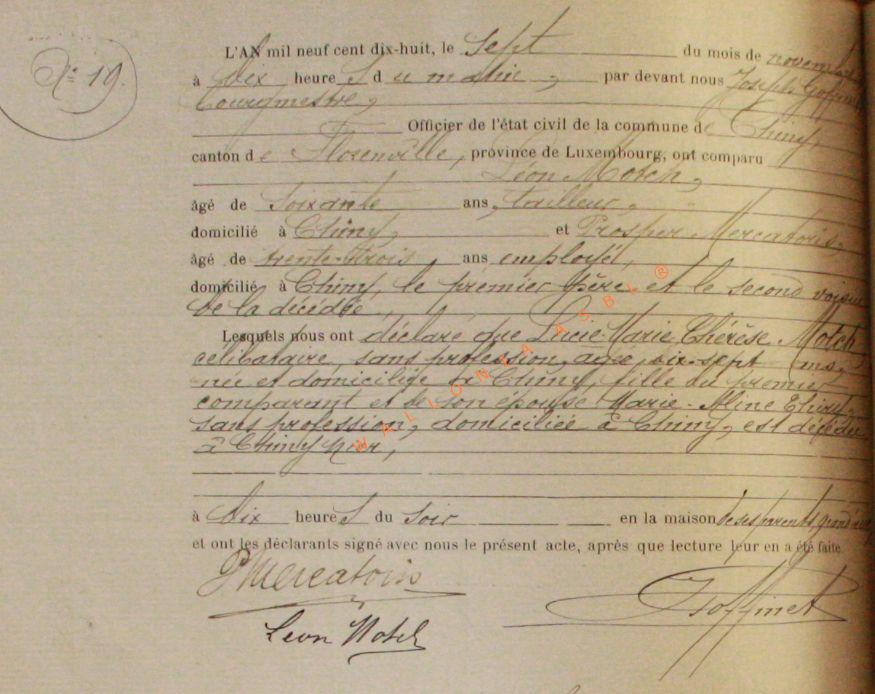 N° 19.
L'AN mil neuf cent dix-huit, le Sept du mois de novembre
à dix heures du matin, par devant nous Joseph Goffinet
bourgmestre,
Officier de l'état civil de la commune de Chiny,
canton de Florenville, province de Luxembourg, ont comparu
Léon Motch,
âgé de Soixante ans, tailleur,
domicilié à Chiny, et Prosper Mercatoris,
âgé de trente-trois ans employé,
domicilié à Chiny, le premier père et le second voisin
de la décédée,
Lesquels nous ont déclaré que Lucie-Marie-Thérèse Motch
célibataire, sans profession, agée, dix-sept ans,
née et domiciliée à Chiny, fille du premier
comparant et de son épouse Marie-
sans profession, domiciliée à Chiny, est décédée
à Chiny hier,
à dix heures du soir en la maison de ses parents
et ont les déclarants signé avec nous le présent acte, après que lecture leur en a été faite.
PMercatoris
JGoffinet
Léon Motch
WALLONIA ASBL ®